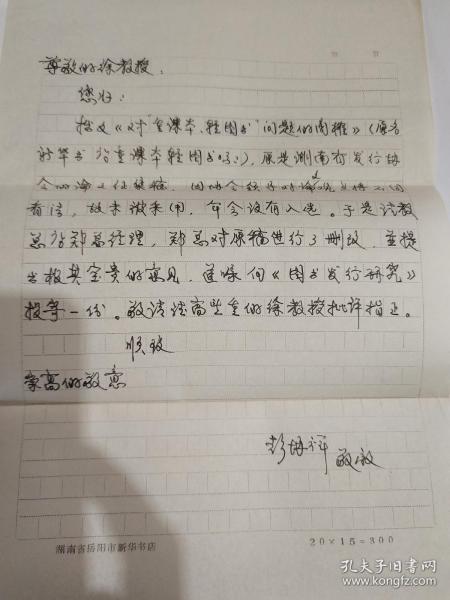 尊敬的徐教授：
您好：
拙文《对“重课本、轻图书”问题的商榷》（原名
新华书店重课本轻图书吗？），原是湖南省发行协
会的论文
看法，故未被采用，年会没有入选。于是请教
总店郑总经理，郑总对原稿进行了删改，并提
出极其宝贵的意见，遵嘱向《图书发行研究》
投寄一份。敬请德高望重的徐教授批评指正。
顺致
崇高的敬意
彭
湖南省岳阳市新华书店
20×15=300
孔夫子旧书网
www.kongfz.com